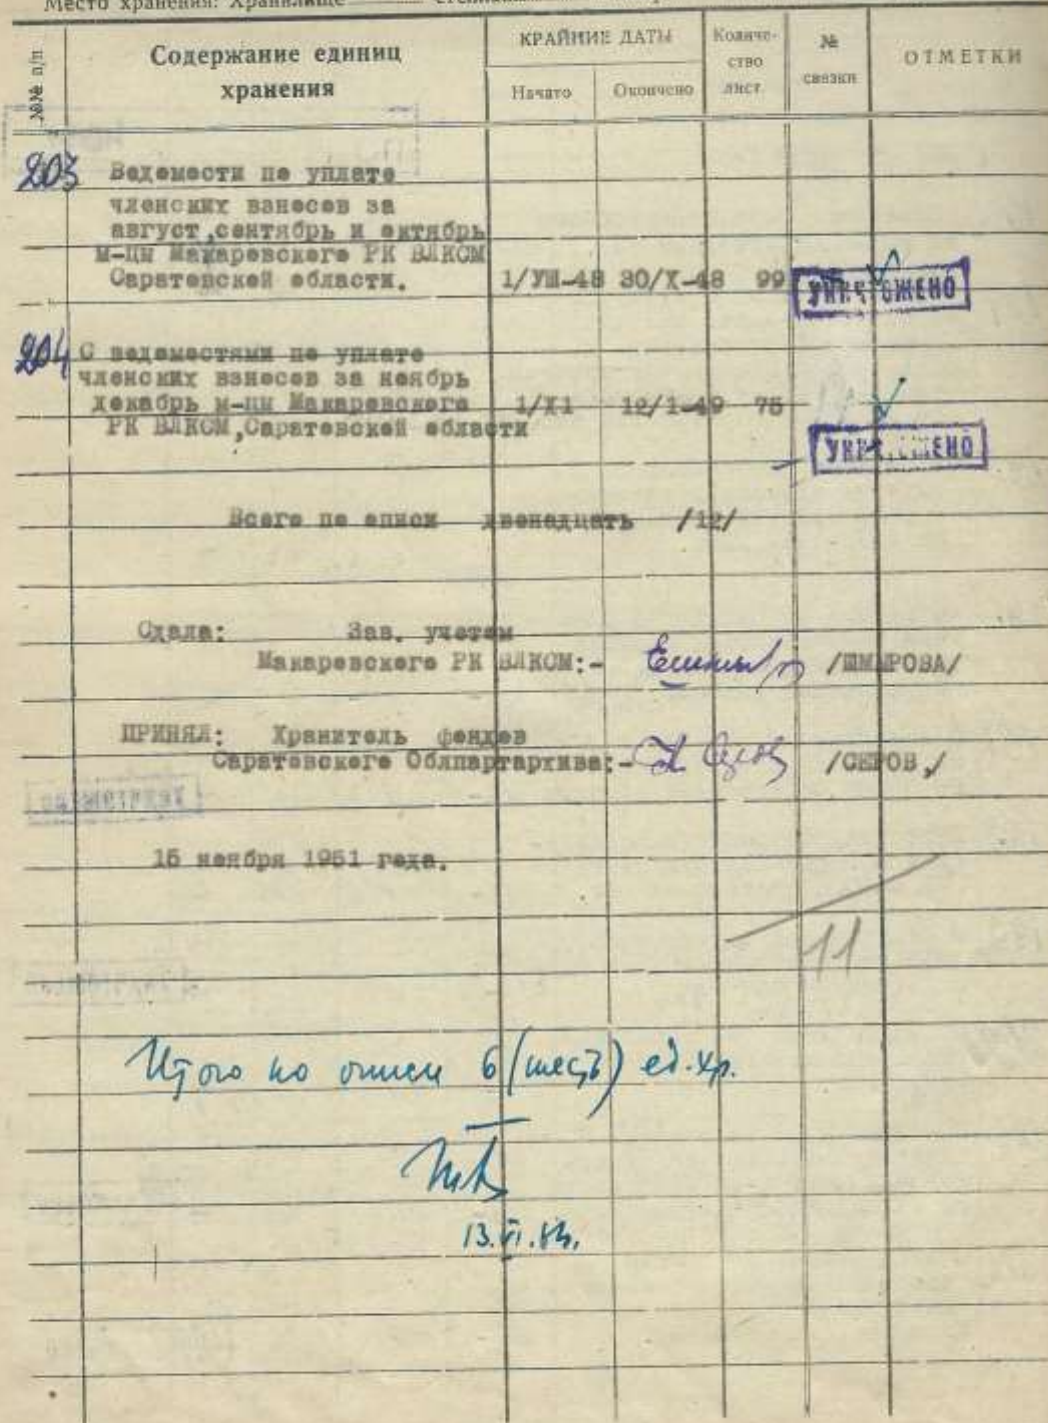 Место хранения: Хранилище
№№ п/п
Содержание единиц хранения
КРАЙНИЕ ДАТЫ
Начато
Окончено
Количе-
ство
лист
№
связки
ОТМЕТКИ
203 Ведомости по уплате
членских взносов за
август,сентябрь и октябрь
м-цы Макаровского РК ВЛКСМ
Саратовской области. 1/УШ-48 30/Х-48 99
УНИЧТОЖЕНО
204 С ведомостями по уплате
членских взносов за ноябрь
декабрь м-цы Макаровского 1/Х1 12/1-49 75
РК ВЛКСМ,Саратовской области
УНИЧТОЖЕНО
Всего по описи двенадцать /12/
Сдала: Зав. учетом
Макаровского РК ВЛКСМ:- /ШМЫРОВА/
ПРИНЯЛ: Хранитель фондов
Саратовского Облпартархива:- /СЕРОВ./
15 ноября 1951 года.
11
Итого по описи 6 (шесть) ед.хр.
13.VI.84.